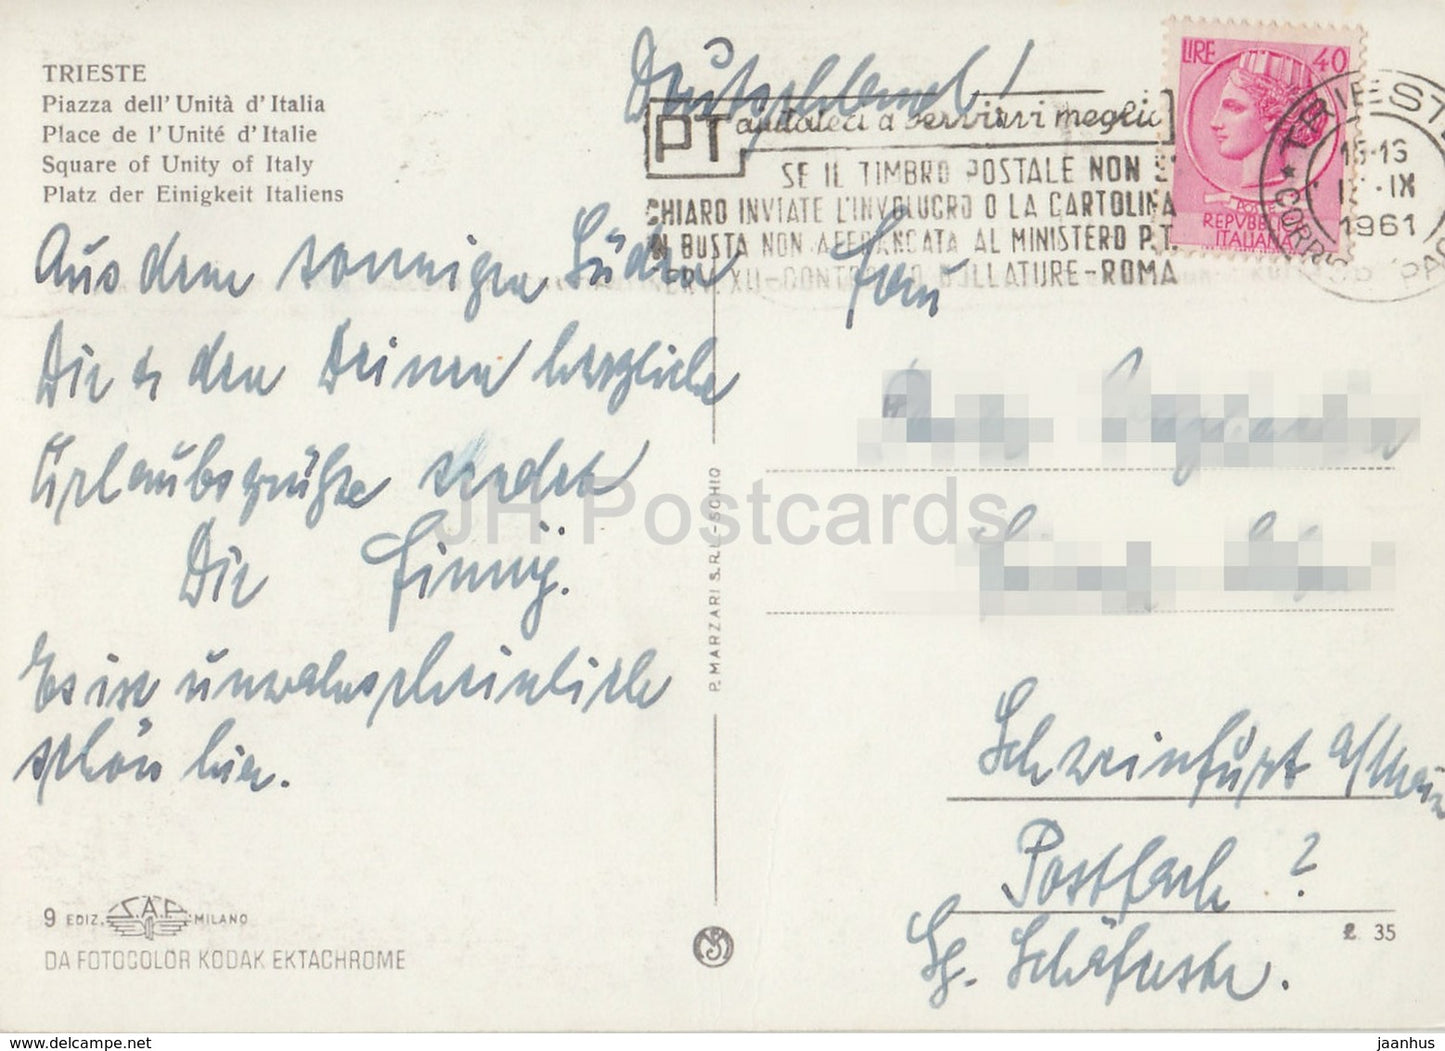 TRIESTE
Piazza dell' Unità d' Italia
Place de l' Unité d' Italie
Square of Unity of Italy
Platz der Einigkeit Italiens
Deutschland!
PT aiutateci a servirvi meglio
SE IL TIMBRO POSTALE NON E'
CHIARO INVIATE L'INVOLUCRO O LA CARTOLINA
IN BUSTA NON AFFRANCATA AL MINISTERO P.T.
BOLLATURE-ROMA
LIRE 40
REPVBBLICA
ITALIANA
TRIESTE
15-16
IX
1961
Aus dem sonnigen Süden
Dir & den Deinen herzliche
Urlaubsgrüße sendet
Die Finny.
Es ist unwahrscheinlich
schön hier.
Schweinfurt a/Main
Postfach ?
Schäfwstr.
P. MARZARI S.R.L. - SCHIO
9 EDIZ. S.A.F. MILANO
DA FOTOCOLOR KODAK EKTACHROME
35
JH Postcards
www.delcampe.net
jaanhus